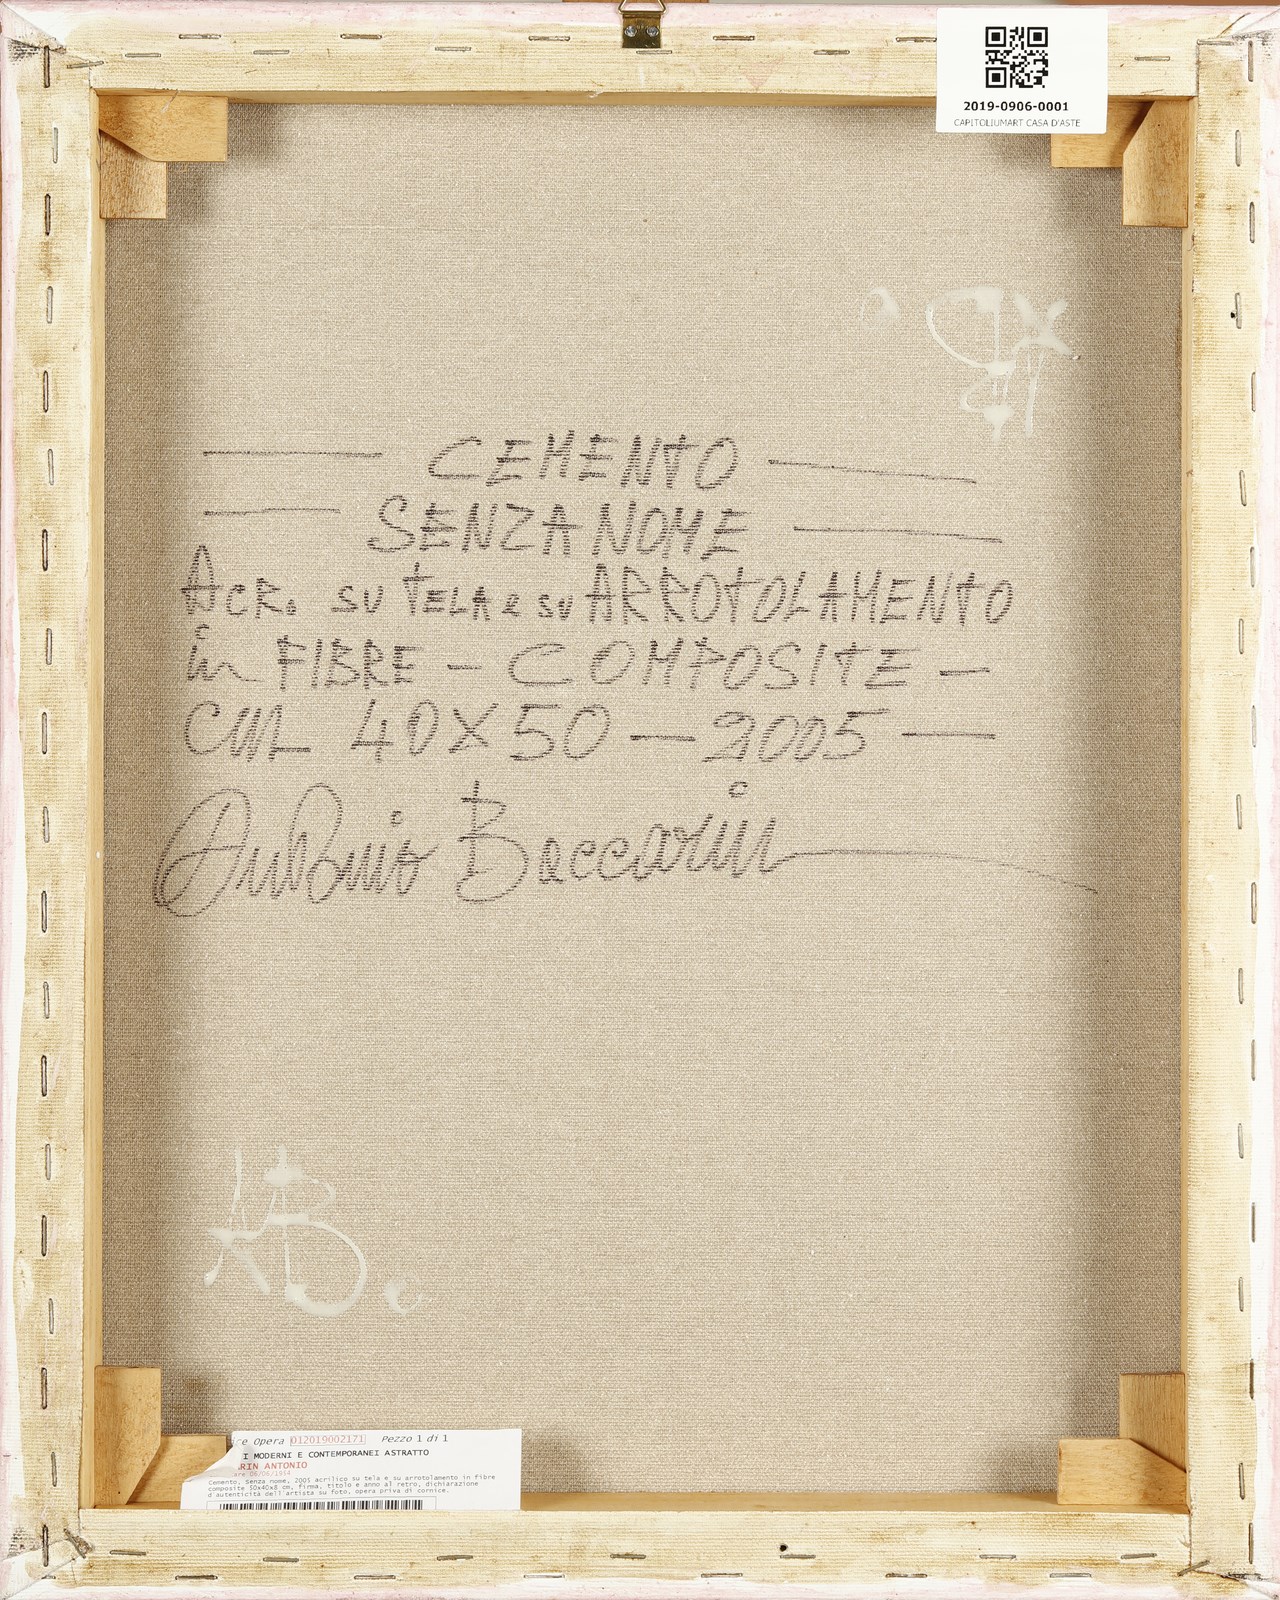 2019-0906-0001
CAPITOLIUMART CASA D'ASTE
CEMENTO
SENZA NOME
Acr. su TELA e su ARROTOLAMENTO
in FIBRE - COMPOSITE -
cm 40X50 - 2005
Antonio Baccarin
Opera 012019002171 Pezzo 1 di 1
I MODERNI E CONTEMPORANEI ASTRATTO
RIN ANTONIO
Cemento, Senza nome, 2005 acrilico su tela e su arrotolamento in fibre
composite 50x40x8 cm, firma, titolo e anno al retro, dichiarazione
d'autenticità dell'artista su foto, opera priva di cornice.